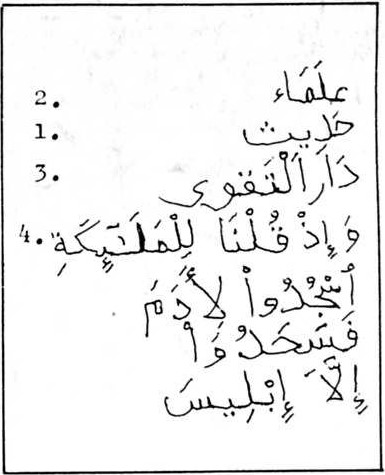 2. علَمَاء
1. حَديث
3. دَارَالْتَقوى
4. وَإِذْ قُلْنَا لِلْمَلَـٰٓئِكَةِ
ٱسْجُدُواْ لِأَدَمَ
فَسَجَدُ وَاْ
إِلَّآ إِبْلِيسَ